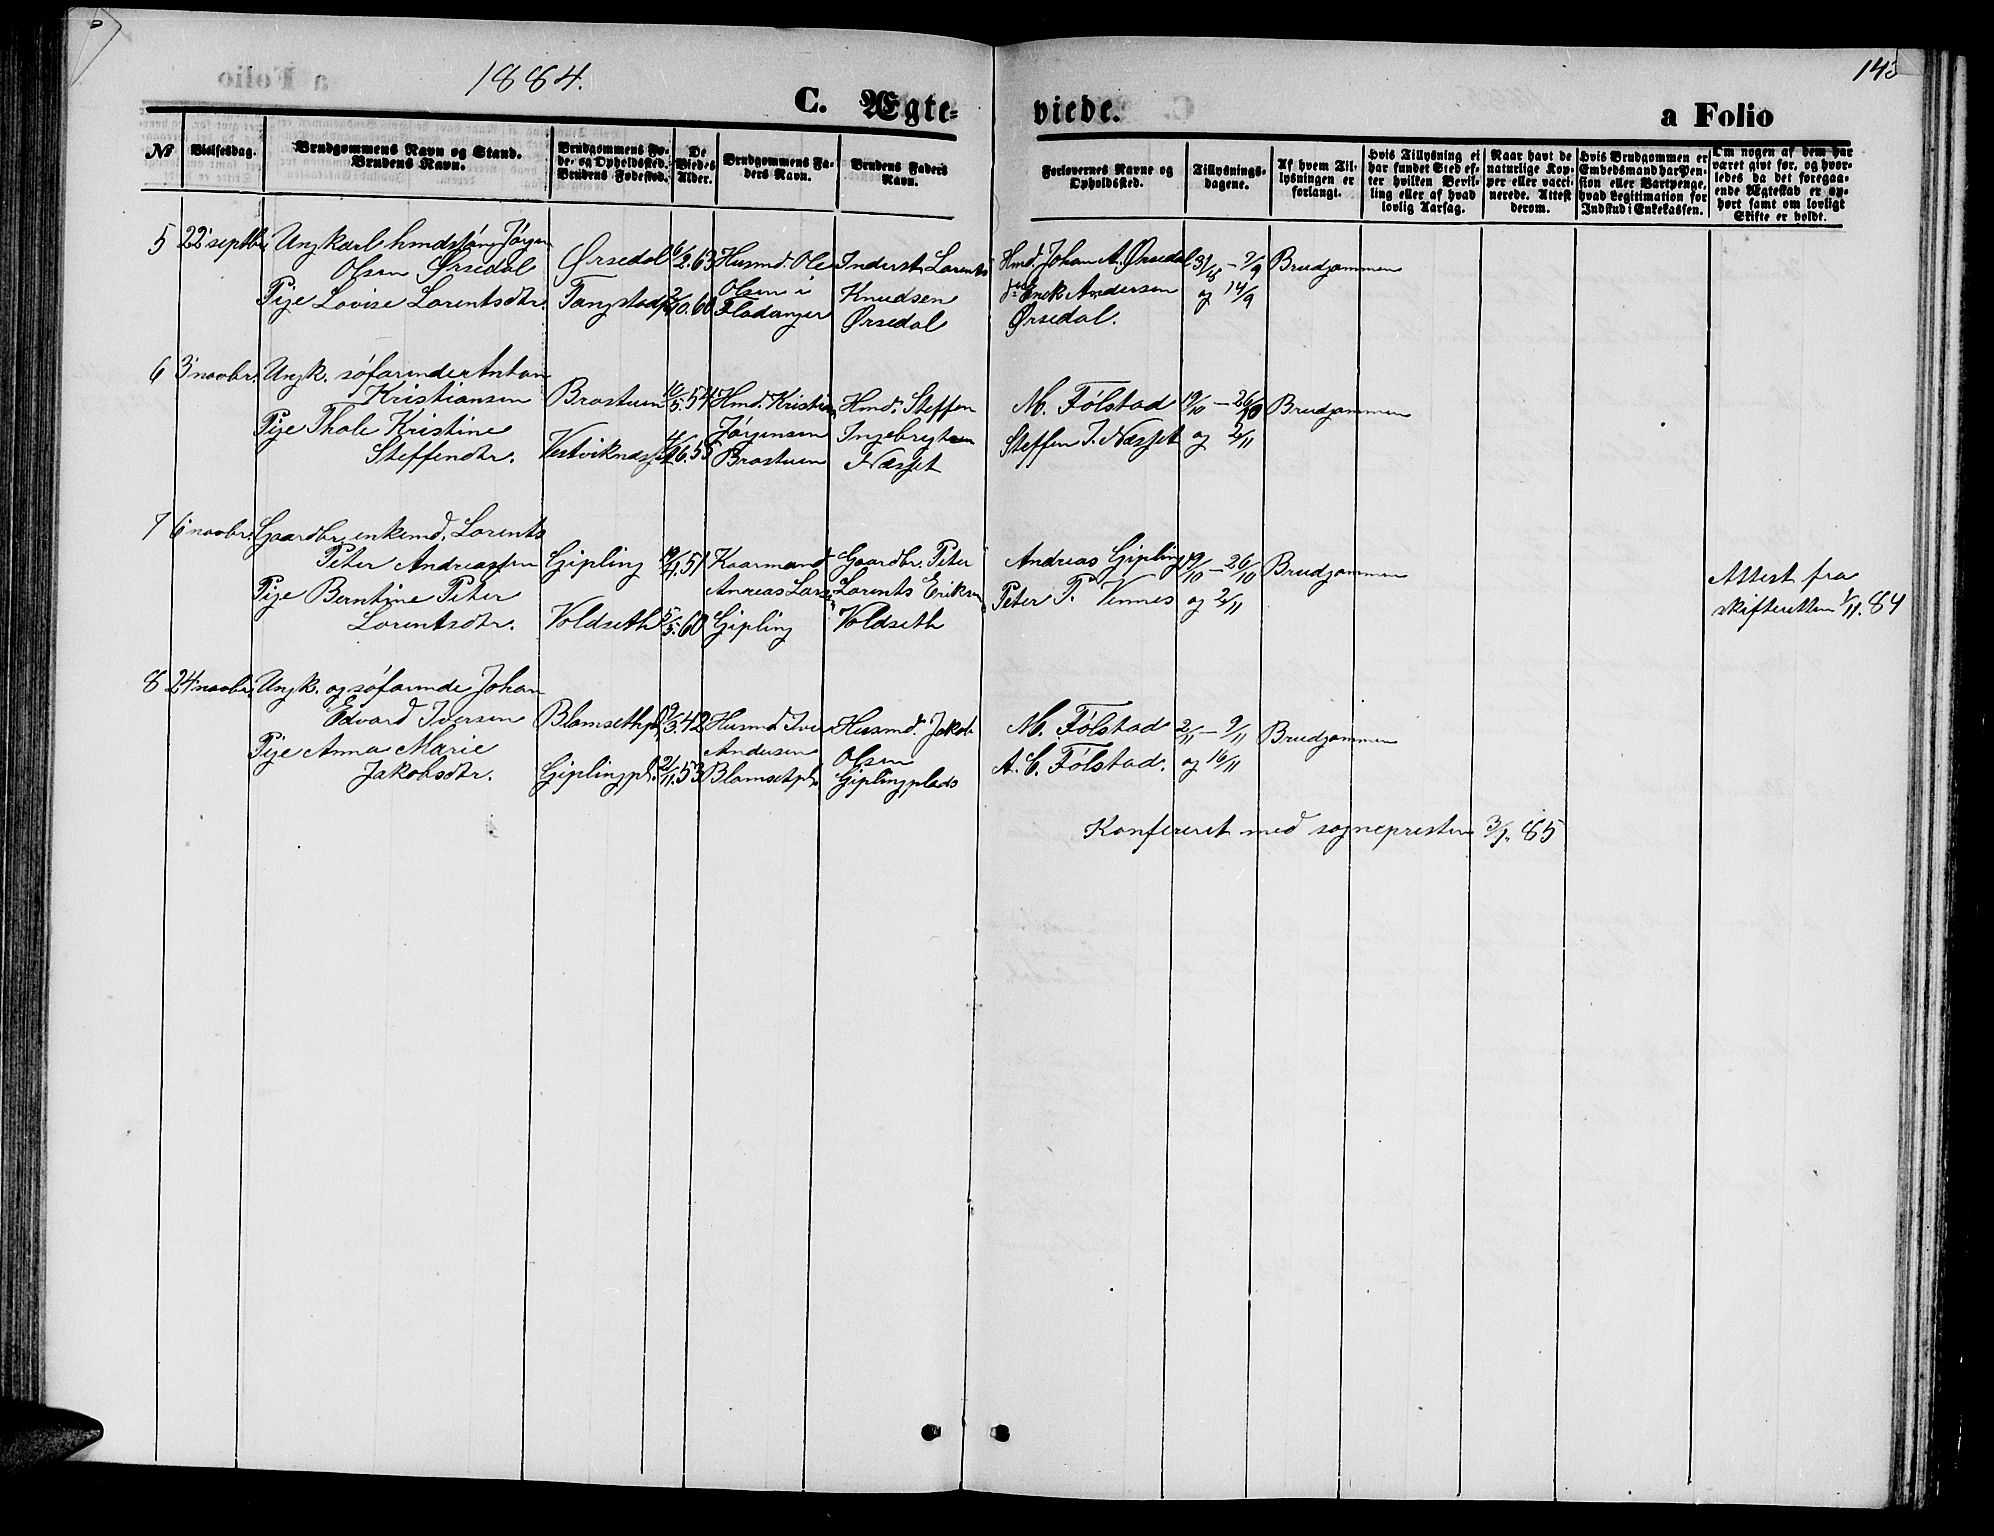 1884.
143
C. Ægte-
viede.
a Folio
№
Vielsesdag.
Brudgommens Navn og Stand.
Brudens Navn.
Brudgommens Fø-
de- og Opholdssted.
Brudens Fødested.
De
Viedes
Alder.
Brudgommens Fa-
ders Navn.
Brudens Faders
Navn.
Forlovernes Navne og
Opholdssted.
Tillysnings-
dagene.
Af hvem Til-
lysningen er
forlangt.
Hvis Tillysning ei
har fundet Sted ef-
ter hvilken Bevil-
ling eller af hvad
lovlig Aarsag.
Naar havt de
naturlige Kop-
per eller vacci-
nerede. Attest
derom.
Hvis Brudgommen er
Embedsmand har Pen-
sion eller Vartpenge,
hvad Legitimation for
Indskud i Enkekassen.
Om nogen af dem har
været givt før, og hvor-
ledes da det foregaa-
ende Ægteskab er op-
hørt samt om lovligt
Skifte er holdt.
5 22 septbr. Ungkarl Jørgen
Olsen Ørsedal
Pige Lovise Lorentsdtr.
Ørsedal 6/2.63
Tangstad 2/10.60
Husmd. Ole
Olsen i
Fladanger
Inderst Lorents
Knudsen
Ørsedal
Hmd. Johan A. Ørsedal
Enek Andersen
Ørsedal.
31/8 - 7/9
og 14/9
Brudgommen
6 3 novbr. Ungk. søfarinde Anton
Kristiansen
Pige Thale Kristine
Steffendtr.
Brastuen 10/5.54
Vestviknesset 4/6.55
Hmd. Kristian
Jørgensen
Brastuen
Hmd. Steffen
Ingebrigtsen
Næsset
M. Følstad
Steffen I. Næsset
19/10 - 26/10
og 2/11
Brudgommen
7 6 novbr. Gaardbr. enkemd. Lorents
Peter Andreassen
Pige Berntine Peter
Lorentsdtr.
Gipling 19/4.51
Voldseth 5/5.60
Kaarmand
Anreas Lars
Gipling
Gaardbr. Peter
Lorents Eriksen
Voldseth
Andreas Gipling
Peter P. Vennes
19/10 - 26/10
og 2/11
Brudgommen
Attest fra
skifteretten 1/11.84
8 24 novbr. Ungk. og søfarende Johan
Edvard Iversen
Pige Anna Marie
Jakobsdtr.
Blamsethpl. 9/3.42
Giplingpl. 2/11.53
Husmd. Iver
Andersen
Blamsetpl.
Husmd. Jakob
Olsen
Giplingplads
M. Følstad
A. C. Følstad.
2/11 - 9/11
og 16/11
Brudgommen
Konfereret med sognepresten 3/1.85